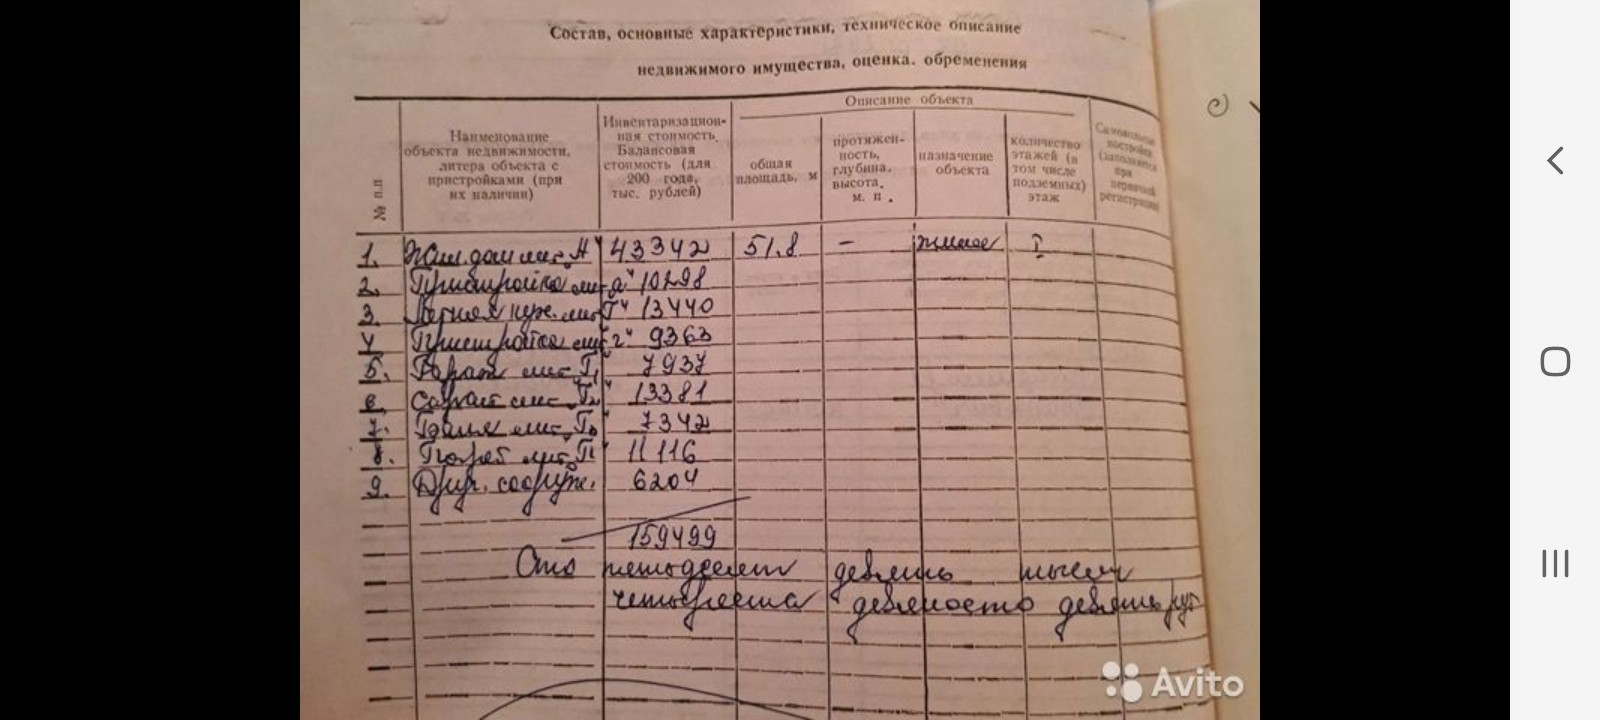 Состав, основные характеристики, техническое описание
недвижимого имущества, оценка. обременения
№ п.п
Наименование
объекта недвижимости,
литера объекта с
пристройками (при
их наличии)
Инвентаризацион-
ная стоимость.
Балансовая
стоимость (для
200 года,
тыс. рублей)
Описание объекта
общая
площадь, м
протяжен-
ность,
глубина.
высота,
м. п.
назначение
объекта
количество
этажей (в
том числе
подземных)
этаж
Самовольные
постройки
(заполняется
при
первичной
регистрации)
1. Жил. дом лит. „А“ 43342 51.8 – жилое I
2. Пристройка лит „а“ 10298
3. Летняя кух. лит „Г“ 13440
4 Пристройка лит „г“ 9363
5. Гараж лит. „Г₁“ 7937
6. Сарай лит „Г₂“ 13381
7. Баня лит. 7342
8. Погреб лит. 11116
9. Друг. сооруж. 6204
159499
Сто пятьдесят девять тысяч
четыреста девяносто девять руб
Avito